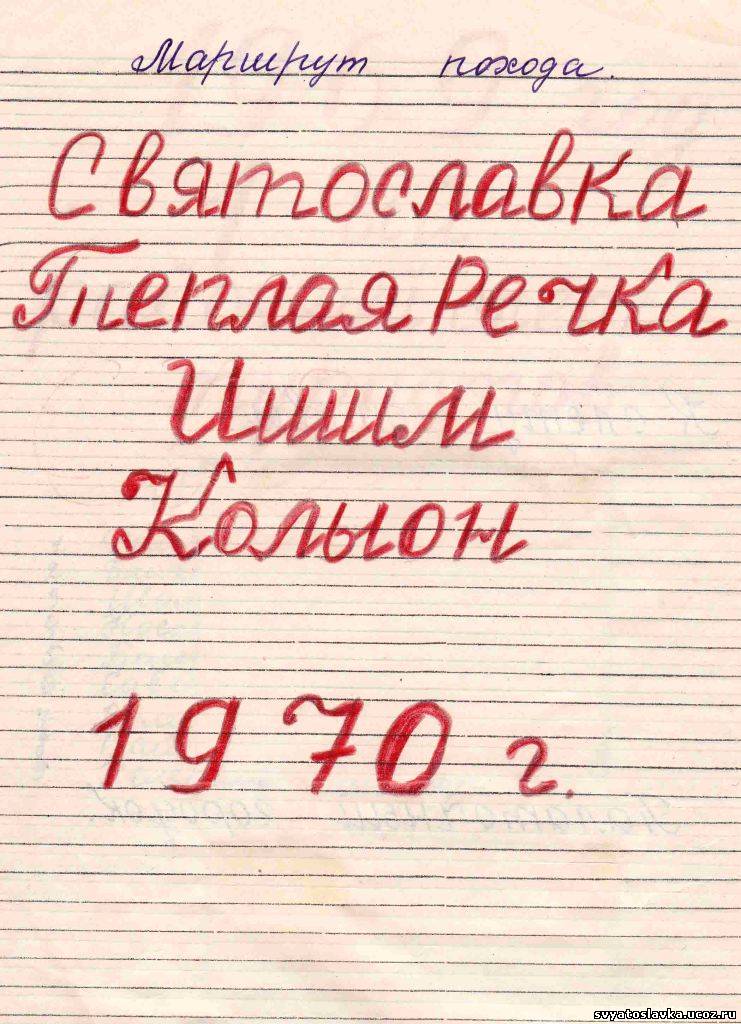 Маршрут похода.
Святославка
Теплая Речка
Ишим
Колыон
1970 г.
svyatoslavka.ucoz.ru